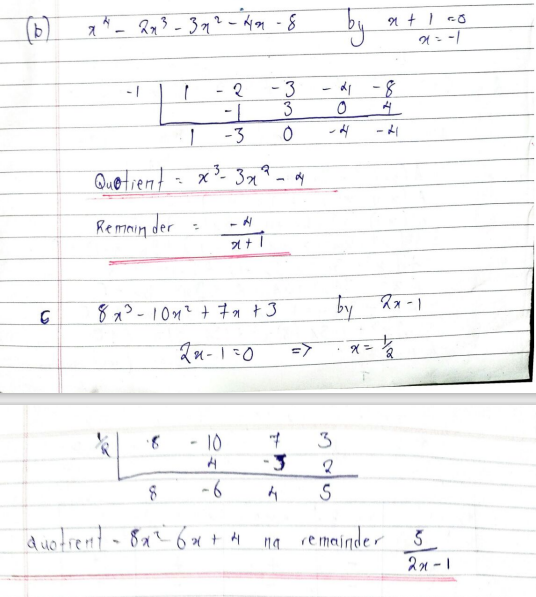 (b) x⁴ - 2x³ - 3x² - 4x - 8 by x + 1 = 0
x = -1
-1 | 1 - 2 - 3 - 4 - 8
-1 3 0 4
1 -3 0 -4 -4
Quotient = x³ - 3x² - 4
Remainder = -4
x + 1
6 8x³ - 10x² + 7x + 3 by 2x - 1
2x - 1 = 0 => x = 1/2
1/2 | 8 - 10 7 3
4 -3 2
8 -6 4 5
Quotient - 8x² - 6x + 4 na remainder 5
2x - 1